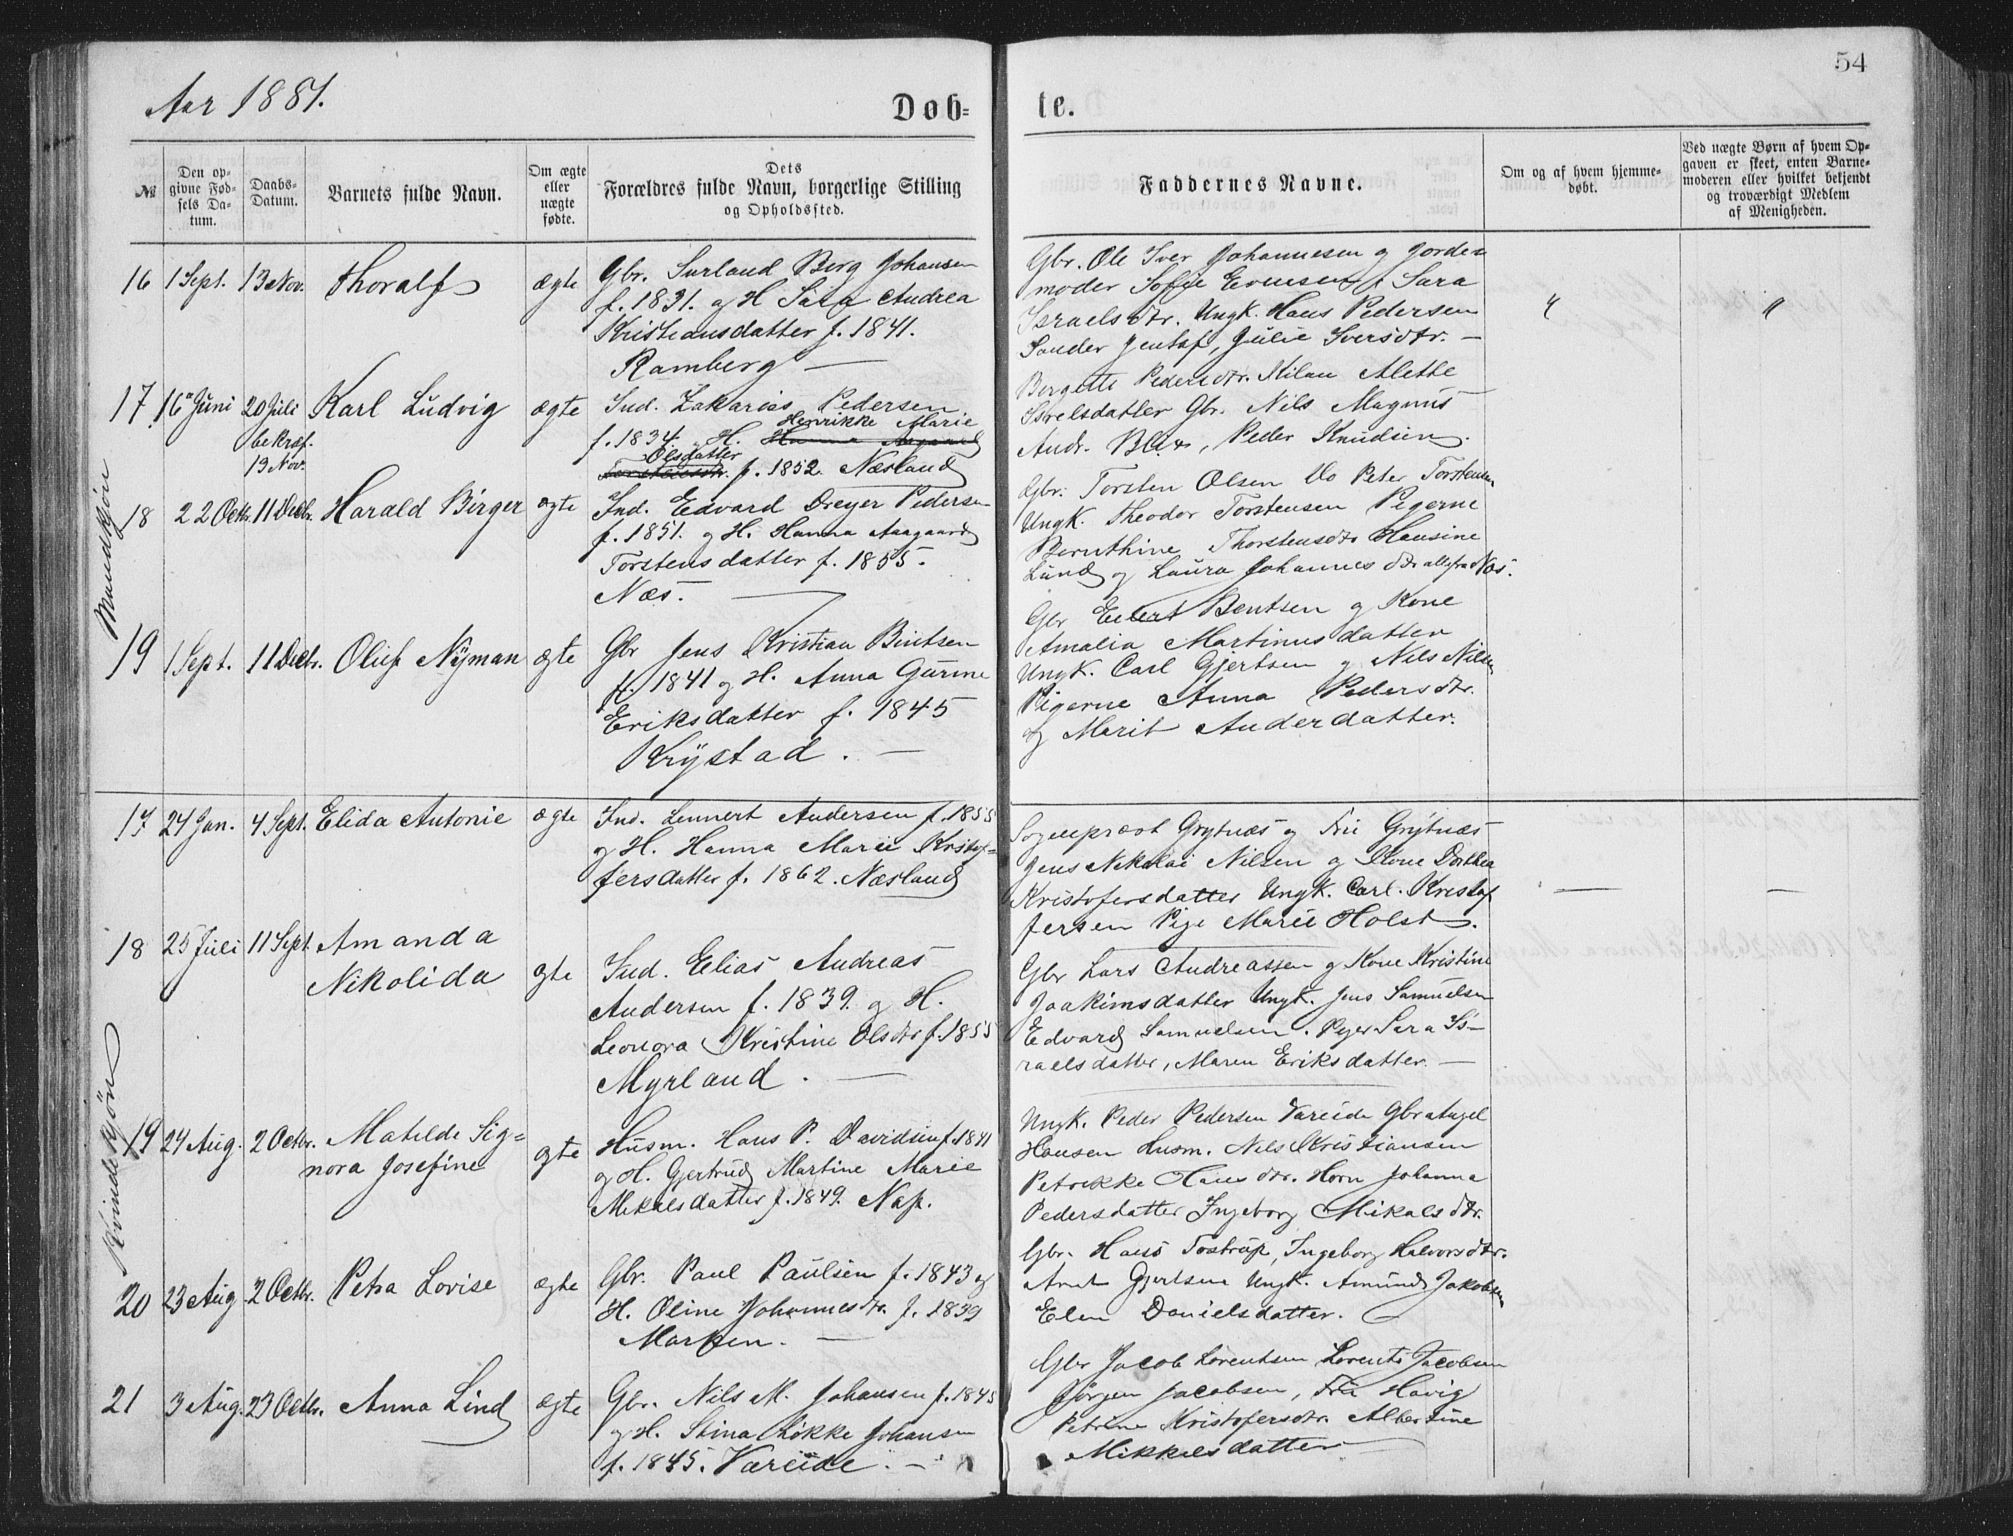 54
Aar 1881.
Døb=
te.
№
Den op-
givne Fød-
sels Da-
tum.
Daabs-
Datum.
Barnets fulde Navn.
Om ægte
eller
uægte
fødte.
Dets
Forældres fulde Navn, borgerlige Stilling
og Opholdssted.
Faddernes Navne.
Om og af hvem hjemme-
døbt.
Ved uægte Børn af hvem Op-
gaven er skeet, enten Barne-
moderen eller hvilket bekjendt
og troværdigt Medlem
af Menigheden.
Mandkjøn
16 1 Sept. 13 Nov. Thoralf ægte
Gbr. Surland Berg Johansen
f. 1831. og H Sara Andrea
Kristiansdatter f. 1841.
Ramberg —
Gbr. Ole Iver Johannesen og Jorde-
moder Sofie Evensen, Sara
Israelsdtr. Ungk. Hans Pedersen
Sander Gustaf, Julie Iversdtr. —
17 16 Juni 20 Juli Karl Ludvig ægte
bekræf.
13 Nov.
Ind. Zakarias Pedersen
Henrikke Marie
f. 1834. H. Hanna Aagaard
Olsdatter
f. 1852. Næsland
Bergitte Pedersdtr. Milau Alethe
Isrelsdatter Gbr. Nils Magnus
Andr. Blix, Peder Knudsen.
18 22 Octbr. 11 Decbr. Harald Birger ægte
Ind. Edvard Dreyer Pedersen
f. 1851. og H. Hanna Aagaard
Torstensdatter f. 1855.
Næs. —
Gbr. Torsten Olsen Do Peter Torstensen
Ungk. Theodor Torstensen Pigerne
Bernthine Thorstensdtr Hansine
Lund og Laura Johannesdtr alle fra Næs.
19 1 Sept. 11 Decbr. Oluf Nyman ægte
Gbr Jens Kristian Bentsen
f. 1841 og H. Anna Gurine
Eriksdatter f. 1845
Krystad. —
Gbr Eilert Bentsen og Kone
Amalia Martinusdatter
Ungk. Carl Gjertsen og Nils Nilsen
Pigerne Anna Pedersdtr.
og Marit Andersdatter.
Kvindekjøn
17 24 Jan. 4 Sept. Elida Antonie ægte
Ind. Lennert Andersen f. 1855
og H. Hanna Marie Kristof=
fersdatter f. 1862. Næsland
Sogneprest Grytnæs og Fru Grytnæs
Jens Nikolai Nilsen og Kone Dorthea
Kristofersdatter Ungk. Carl. Kristof
fersen Pige Marie Holst.
18 25 Juli 11 Sept. Amanda
Nikolida ægte
Ind. Elias Andreas
Andersen f. 1839. og H.
Leonora Kristine Olsdtr f. 1855
Myrland. —
Gbr Lars Andreassen og Kone Kristine
Joakimsdatter Ungk. Jens Samuelsen
Edvard Samuelsen. Piger Sara Is-
raelsdatter, Maren Eriksdatter. —
19 24 Aug. 2 Octbr. Matilde Sig=
nora Josefine ægte
Husm. Hans P. Davidsen f. 1841
og H. Gjertrud Martine Marie
Mikalsdatter f. 1849. Nap.
Ungk. Peder Pedersen Vareide Gbr Angel
Hansen Husm. Nils Kristiansen
Petrikke Hansdtr. Horn Johanna
Pedersdatter Ingeborg Mikalsdtr.
20 23 Aug 2 Octbr. Petra Lovise ægte
Gbr. Paul Paulsen f. 1843 og
H. Oline Johannesdtr. f. 1839
Marken. —
Gbr. Hans Tostrup, Ingeborg Halvorsdtr.
Arnt Gjertsen Ungk. Amund Jakobsen
Elen Danielsdatter.
21 3 Aug. 23 Octbr. Anna Lind ægte
Gbr. Nils M. Johansen f. 1845
og H. Stina Løkke Johansen
f. 1845. Vareide. —
Gbr Jacob Lorentsen Lorents Jacobsen
Jørgen Jacobsen, Fru Havig
Petrine Kristofersdtr. Albertine
Mikkelsdatter